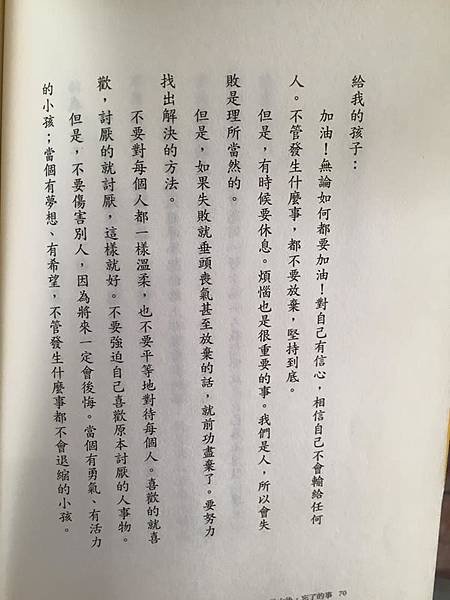 給我的孩子：
加油！無論如何都要加油！對自己有信心，相信自己不會輸給任何
人。不管發生什麼事，都不要放棄，堅持到底。
但是，有時候要休息。煩惱也是很重要的事。我們是人，所以會失
敗是理所當然的。
但是，如果失敗就垂頭喪氣甚至放棄的話，就前功盡棄了。要努力
找出解決的方法。
不要對每個人都一樣溫柔，也不要平等地對待每個人。喜歡的就喜
歡，討厭的就討厭，這樣就好。不要強迫自己喜歡原本討厭的人事物。
但是，不要傷害別人，因為將來一定會後悔。當個有勇氣、有活力
的小孩；當個有夢想、有希望，不管發生什麼事都不會退縮的小孩。
忘了的事 70